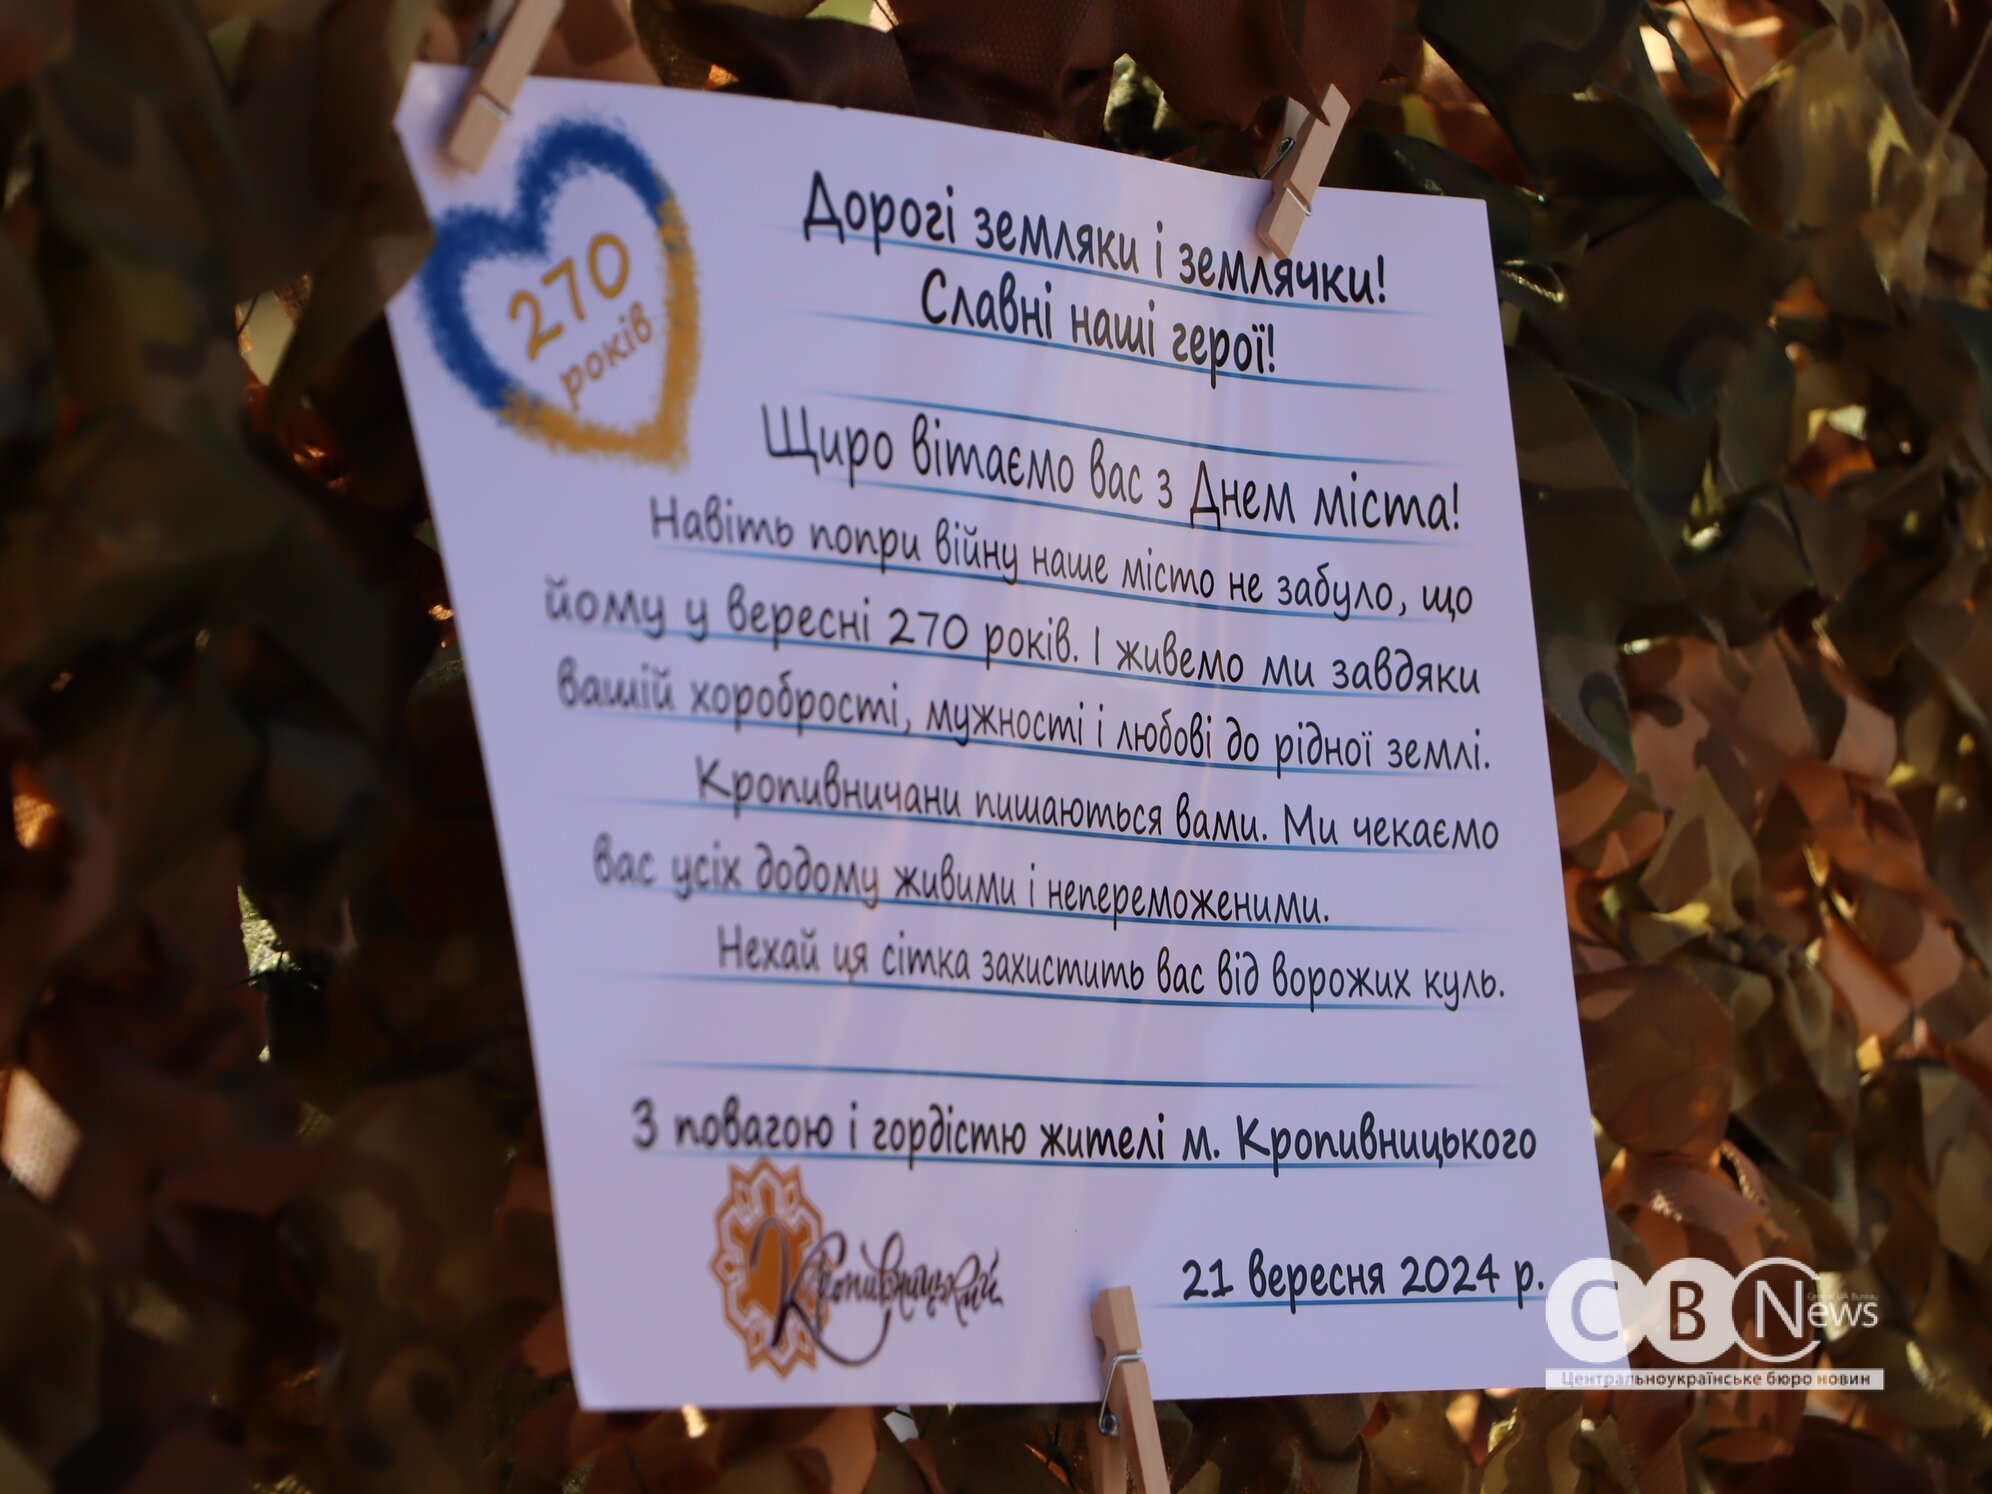 270
років
Дорогі земляки і землячки!
Славні наші герої!
Щиро вітаємо вас з Днем міста!
Навіть попри війну наше місто не забуло, що
йому у вересні 270 років. І живемо ми завдяки
вашій хоробрості, мужності і любові до рідної землі.
Кропивничани пишаються вами. Ми чекаємо
вас усіх додому живими і непереможеними.
Нехай ця сітка захистить вас від ворожих куль.
З повагою і гордістю жителі м. Кропивницького
Кропивницький
21 вересня 2024 р.
CBNews
Central UA Bureau
Центральноукраїнське бюро новин